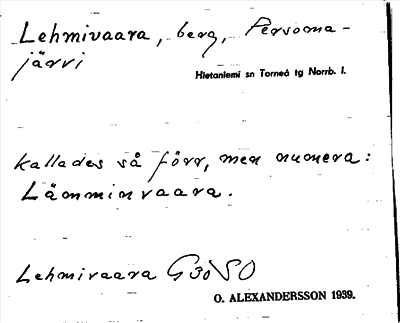 Lehmivaara, berg, Persoma-
järvi
Hietaniemi sn Torneå tg Norrb. l.
kallades så förr, men numera:
Lämminvaara.
Lehmivaara G30SO
O. ALEXANDERSSON 1939.